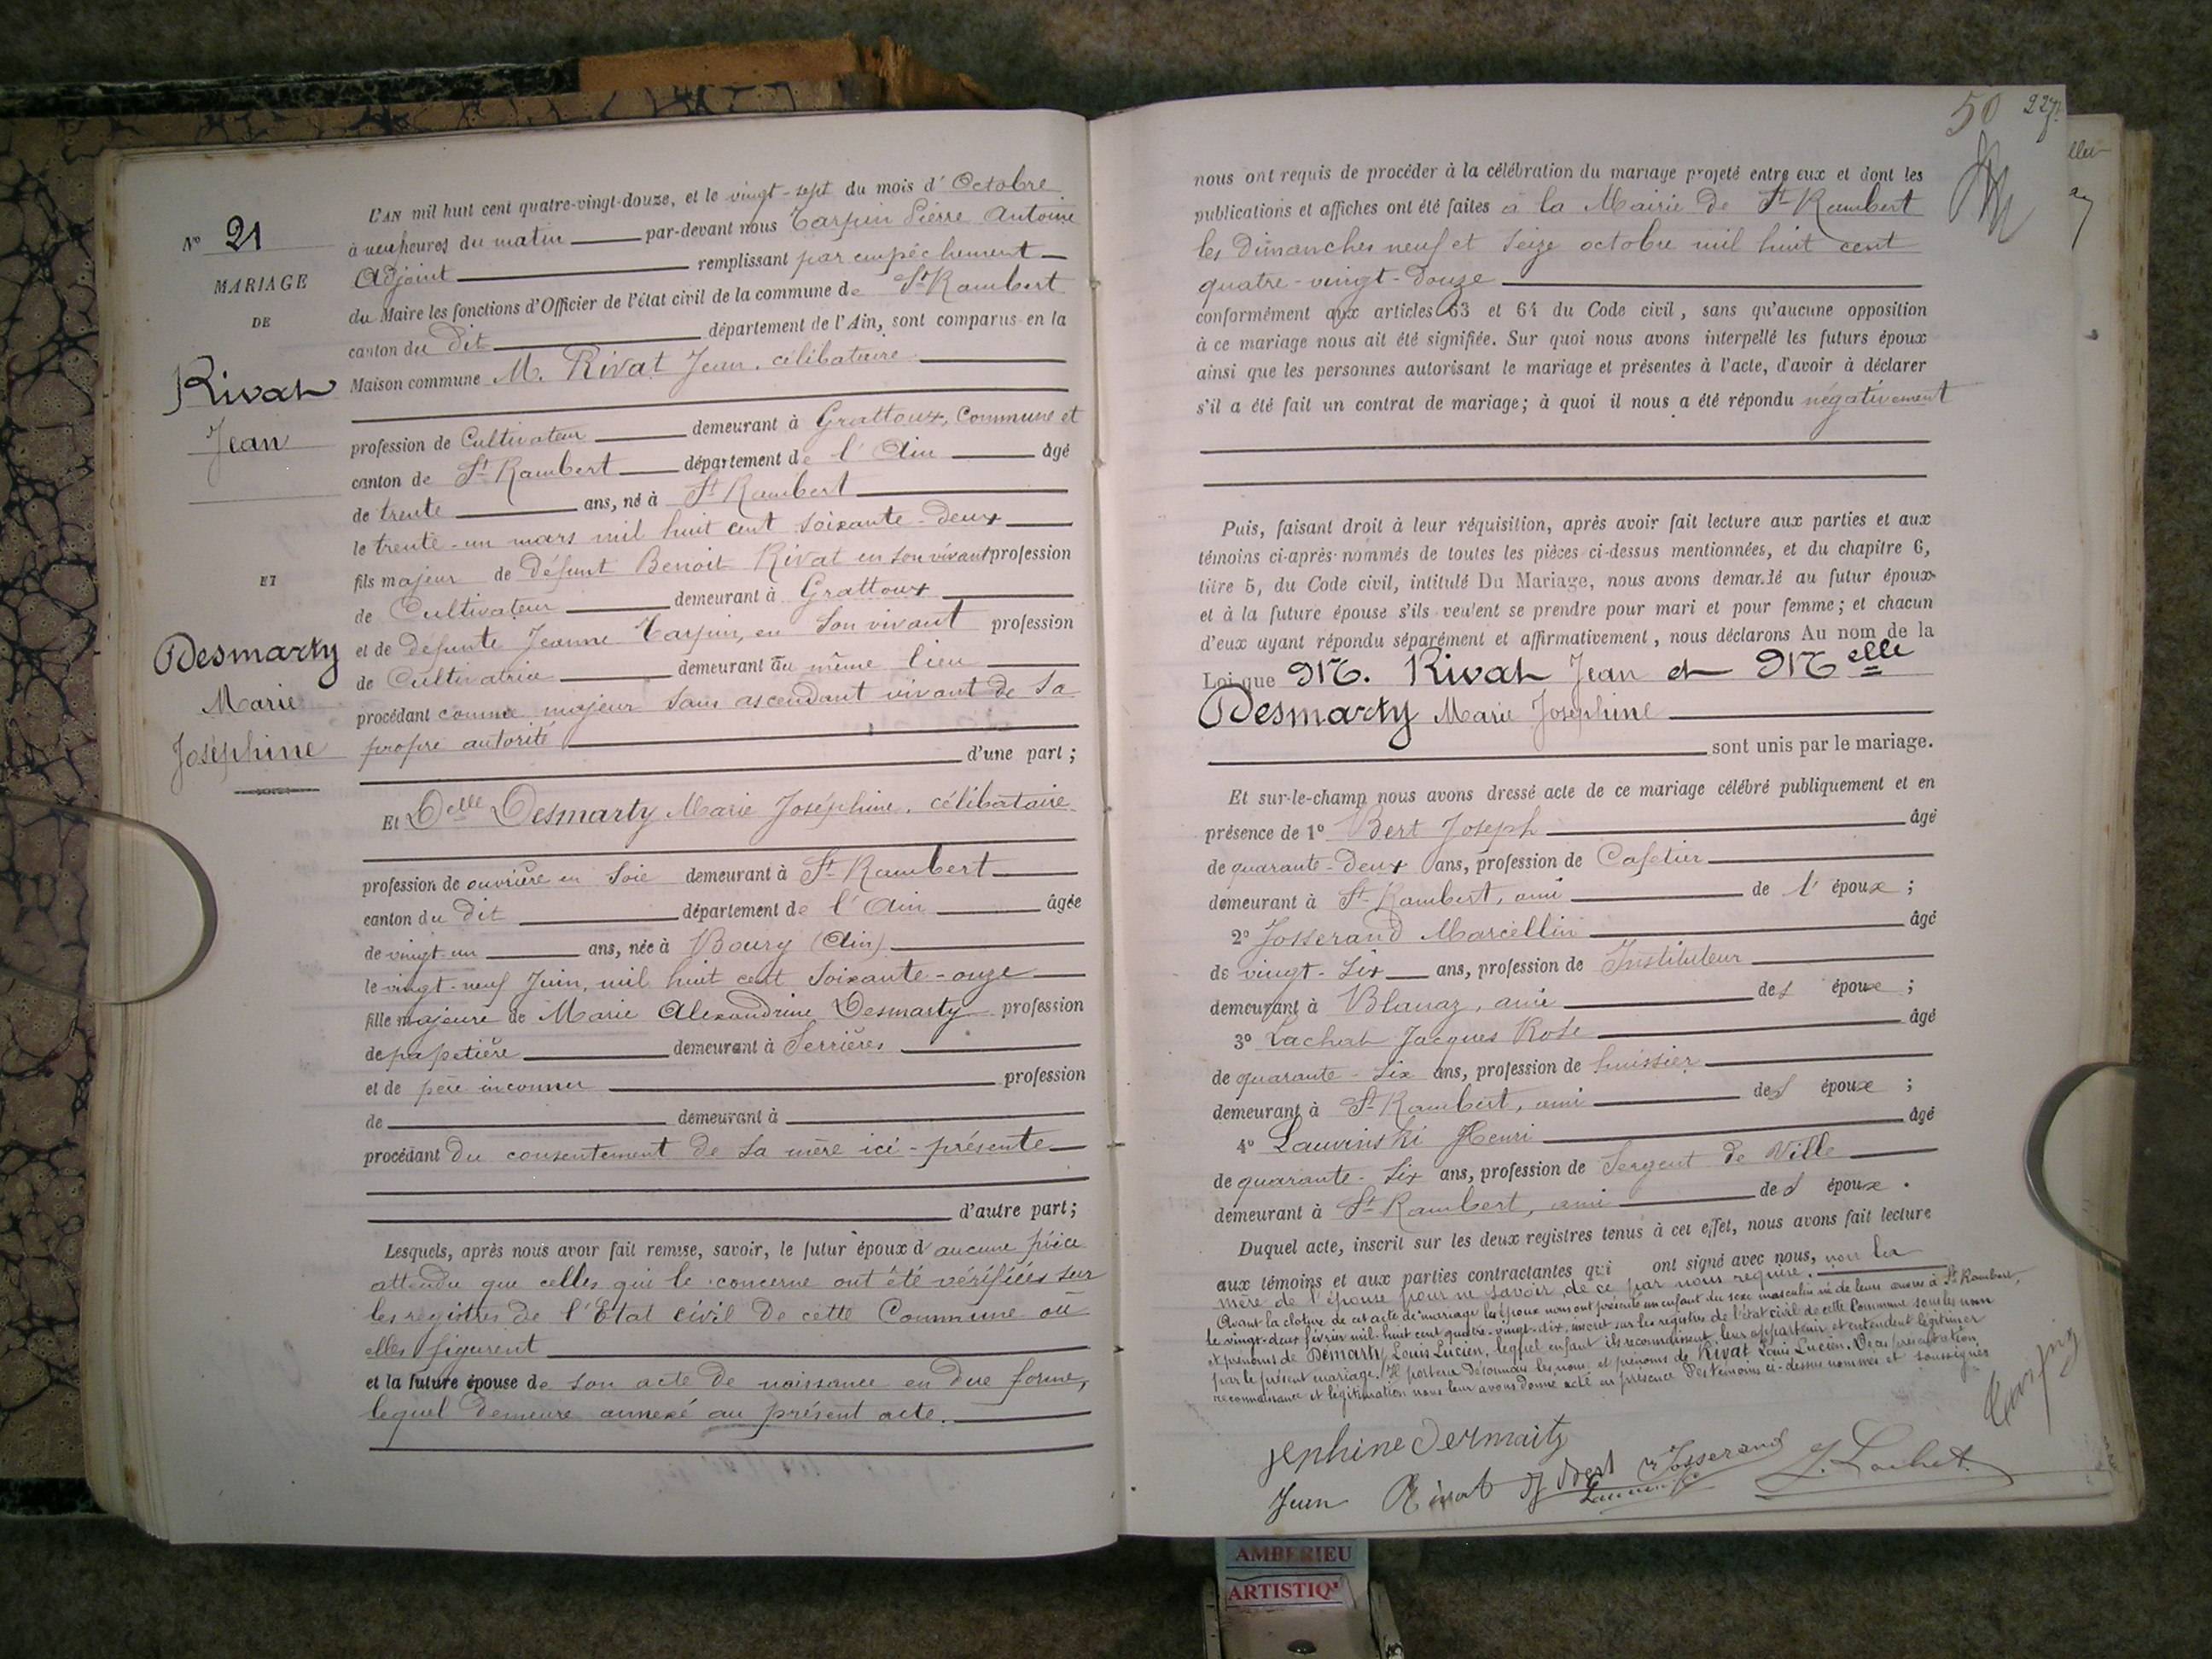 N° 21
MARIAGE
DE
Rivat
Jean
ET
Desmarty
Marie
Joséphine
L'AN mil huit cent quatre-vingt-douze, et le vingt-sept du mois d'Octobre
à neuf heures du matin par-devant nous Tarpin Pierre Antoine
Adjoint remplissant par empêchement
du Maire les fonctions d'Officier de l'état civil de la commune de St Rambert
canton du dit département de l'Ain, sont comparus en la
Maison commune M. Rivat Jean, célibataire
profession de Cultivateur demeurant à Grattoux, Commune et
canton de St Rambert département de l'Ain âgé
de trente ans, né à St Rambert
le trente-un mars mil huit cent soixante-deux
fils majeur de défunt Benoit Rivat en son vivant profession
de Cultivateur demeurant à Grattoux
et de défunte Jeanne Tarpin, en son vivant profession
de Cultivatrice demeurant au même lieu
procédant comme majeur sans ascendant vivant de sa
propre autorité
d'une part;
Et Delle Desmarty Marie Joséphine, célibataire
profession de ouvrière en soie demeurant à St Rambert
canton du dit département de l'Ain âgée
de vingt-un ans, née à Bourg (Ain)
le vingt-neuf Juin, mil huit cent soixante-onze
fille majeure de Marie Alexandrine Desmarty profession
de papetière demeurant à Serrières
et de père inconnu profession
de demeurant à
procédant du consentement de sa mère ici-présente
d'autre part;
Lesquels, après nous avoir fait remise, savoir, le futur époux d'aucune pièce
attendu que celles qui le concerne ont été vérifiées sur
les registres de l'Etat civil de cette Commune où
elles figurent
et la future épouse de son acte de naissance en due forme,
lequel demeure annexé au présent acte.
50 227
nous ont requis de procéder à la célébration du mariage projeté entre eux et dont les
publications et affiches ont été faites à la Mairie de St Rambert
les dimanches neuf et seize octobre mil huit cent
quatre-vingt-douze
conformément aux articles 63 et 64 du Code civil, sans qu'aucune opposition
à ce mariage nous ait été signifiée. Sur quoi nous avons interpellé les futurs époux
ainsi que les personnes autorisant le mariage et présentes à l'acte, d'avoir à déclarer
s'il a été fait un contrat de mariage; à quoi il nous a été répondu négativement
Puis, faisant droit à leur réquisition, après avoir fait lecture aux parties et aux
témoins ci-après nommés de toutes les pièces ci-dessus mentionnées, et du chapitre 6,
titre 5, du Code civil, intitulé Du Mariage, nous avons demandé au futur époux
et à la future épouse s'ils veulent se prendre pour mari et pour femme; et chacun
d'eux ayant répondu séparément et affirmativement, nous déclarons Au nom de la
Loi que M. Rivat Jean et Melle
Desmarty Marie Joséphine
sont unis par le mariage.
Et sur-le-champ nous avons dressé acte de ce mariage célébré publiquement et en
présence de 1° Bert Joseph âgé
de quarante-deux ans, profession de Cafetier
demeurant à St Rambert, ami de l'époux;
2° Josserand Marcellin âgé
de vingt-six ans, profession de Instituteur
demeurant à Blanaz, ami des époux;
3° Lachat Jacques Rose âgé
de quarante-six ans, profession de huissier
demeurant à St Rambert, ami des époux;
4° Lauvinski Henri âgé
de quarante-six ans, profession de Sergent de Ville
demeurant à St Rambert, ami des époux.
Duquel acte, inscrit sur les deux registres tenus à cet effet, nous avons fait lecture
aux témoins et aux parties contractantes qui ont signé avec nous, non la
mère de l'épouse pour ne savoir, de ce par nous requise.
Avant la cloture de cet acte de mariage les époux nous ont présenté un enfant du sexe masculin né de leurs œuvres à St Rambert,
le vingt-deux février mil-huit cent quatre-vingt-dix, inscrit sur les registres de l'état civil de cette Commune sous les nom
et prénoms de Demarty Louis Lucien, lequel enfant ils reconnaissent leur appartenir et entendent légitimer
par le présent mariage. Il portera désormais les nom et prénoms de Rivat Louis Lucien. De ces présentation,
reconnaissance et légitimation nous leur avons donné acte en présence des témoins ci-dessus nommés et soussignés
Tarpin
Jephine Dermaity
Jean Rivat J Bert M Josserand J. Lachat
AMBERIEU
ARTISTIQ